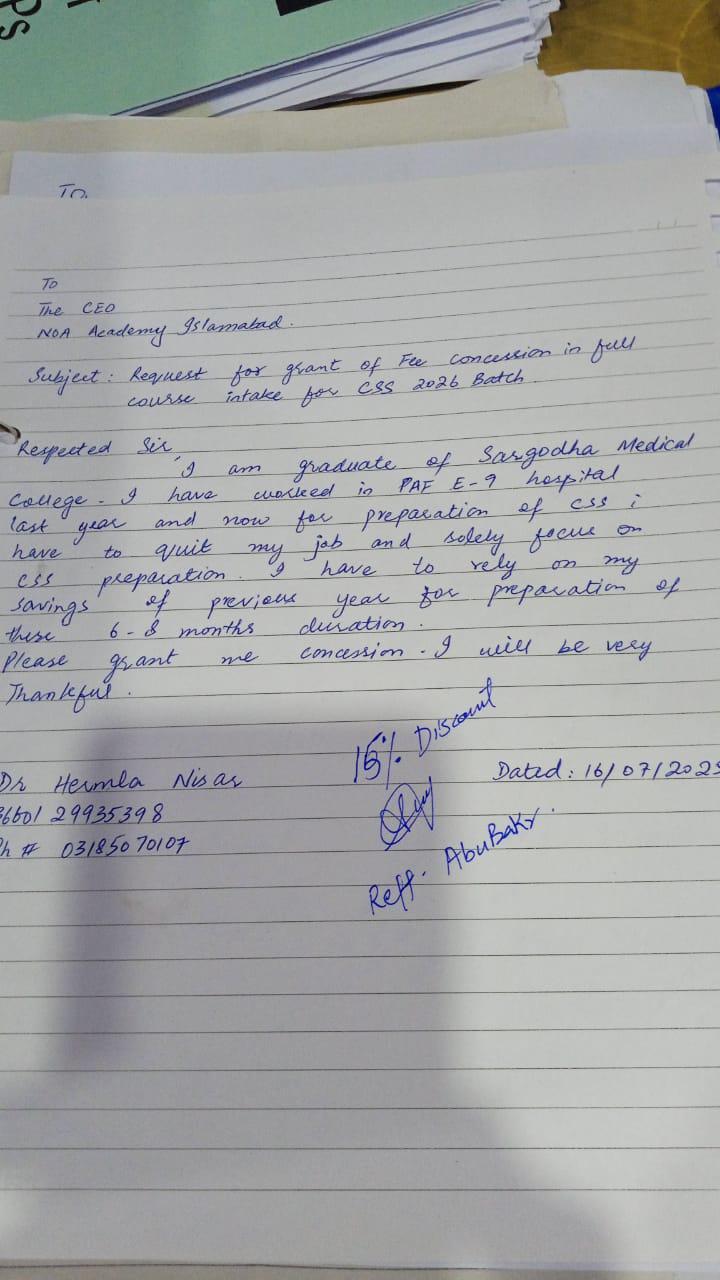 PS
To
To
The CEO
NOA Academy Islamabad.
Subject: Request for grant of Fee concession in full
course intake for CSS 2026 Batch.
Respected Sir,
I am graduate of Sargodha Medical
College. I have worked in PAF E-9 hospital
last year and now for preparation of css i
have to quit my job and solely focus on
css preparation. I have to rely on my
savings of previous year for preparation of
these 6-8 months duration.
Please grant me concession. I will be very
Thankful.
15% Discount
Dr Nisar
Dated: 16/07/2025
36601 29935398
Ph # 03185070107
Reff. AbuBakr.